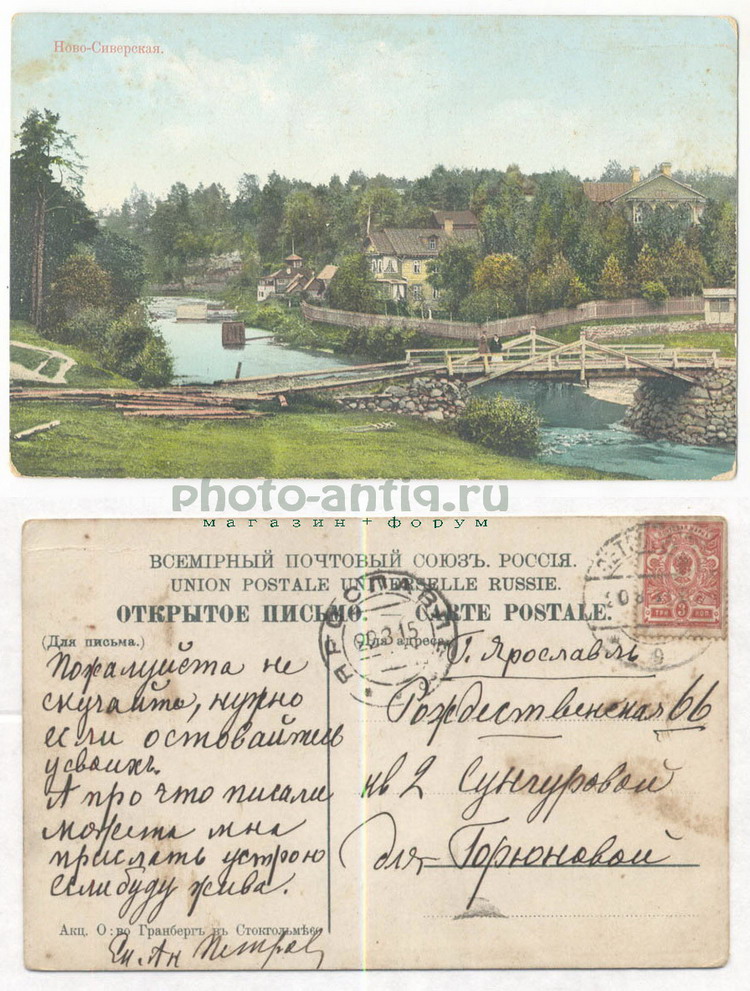 Ново-Сиверская.
photo-antiq.ru
магазин+форум
ВСЕМІРНЫЙ ПОЧТОВЫЙ СОЮЗЪ. РОССІЯ.
UNION POSTALE UNIVERSELLE RUSSIE.
ОТКРЫТОЕ ПИСЬМО. CARTE POSTALE.
(Для письма.)
Пожалуйста не
скучайте, нужно
если остовайтесь
у своихъ.
А про что писали
можете мна
прислать устрою
если буду жива.
Акц. О:во Гранбергъ въ Стокгольмѣ
Петров
(Для адреса.)
Г. Ярославль
Рождественская 66
кв 2 Сунгуровой
для Горюновой
ЯРОСЛАВЛЬ
20.3.15
3